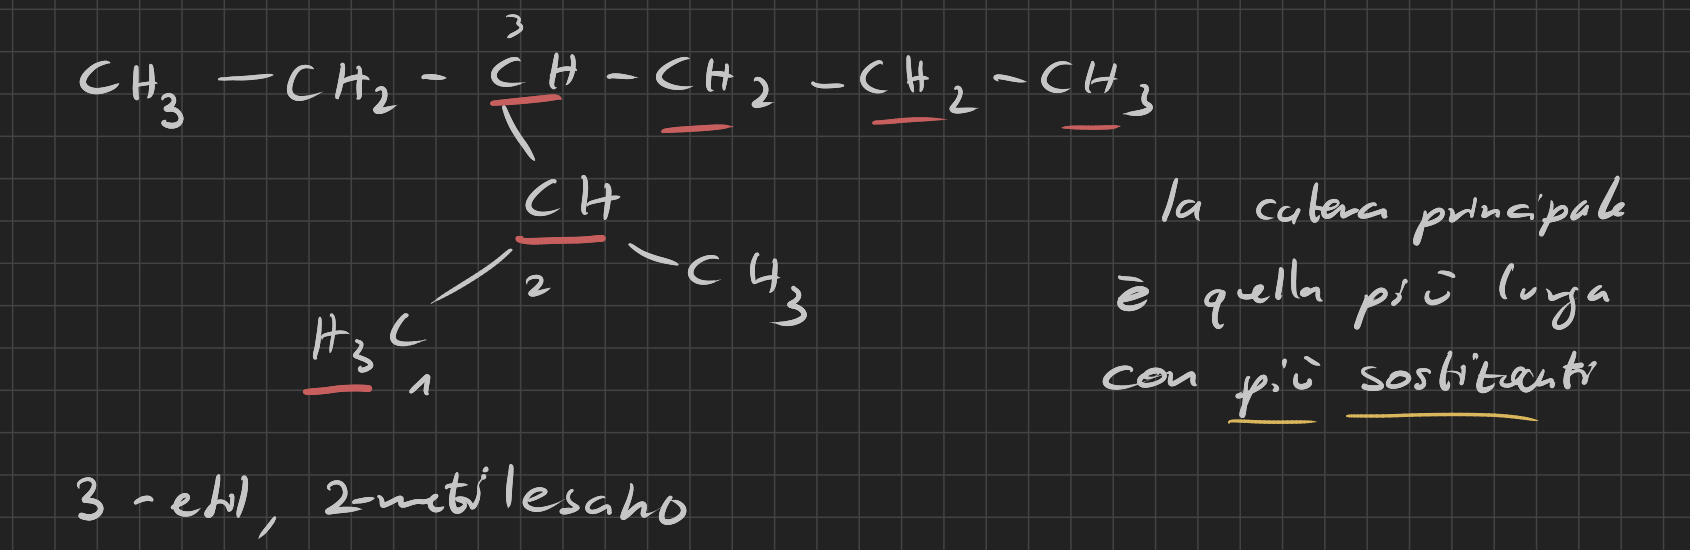 3
CH3 - CH2 - CH - CH2 - CH2 - CH3
CH
2
CH3
H3C
1
la catena principale
è quella più lunga
con più sostituenti
3-etil, 2-metilesano